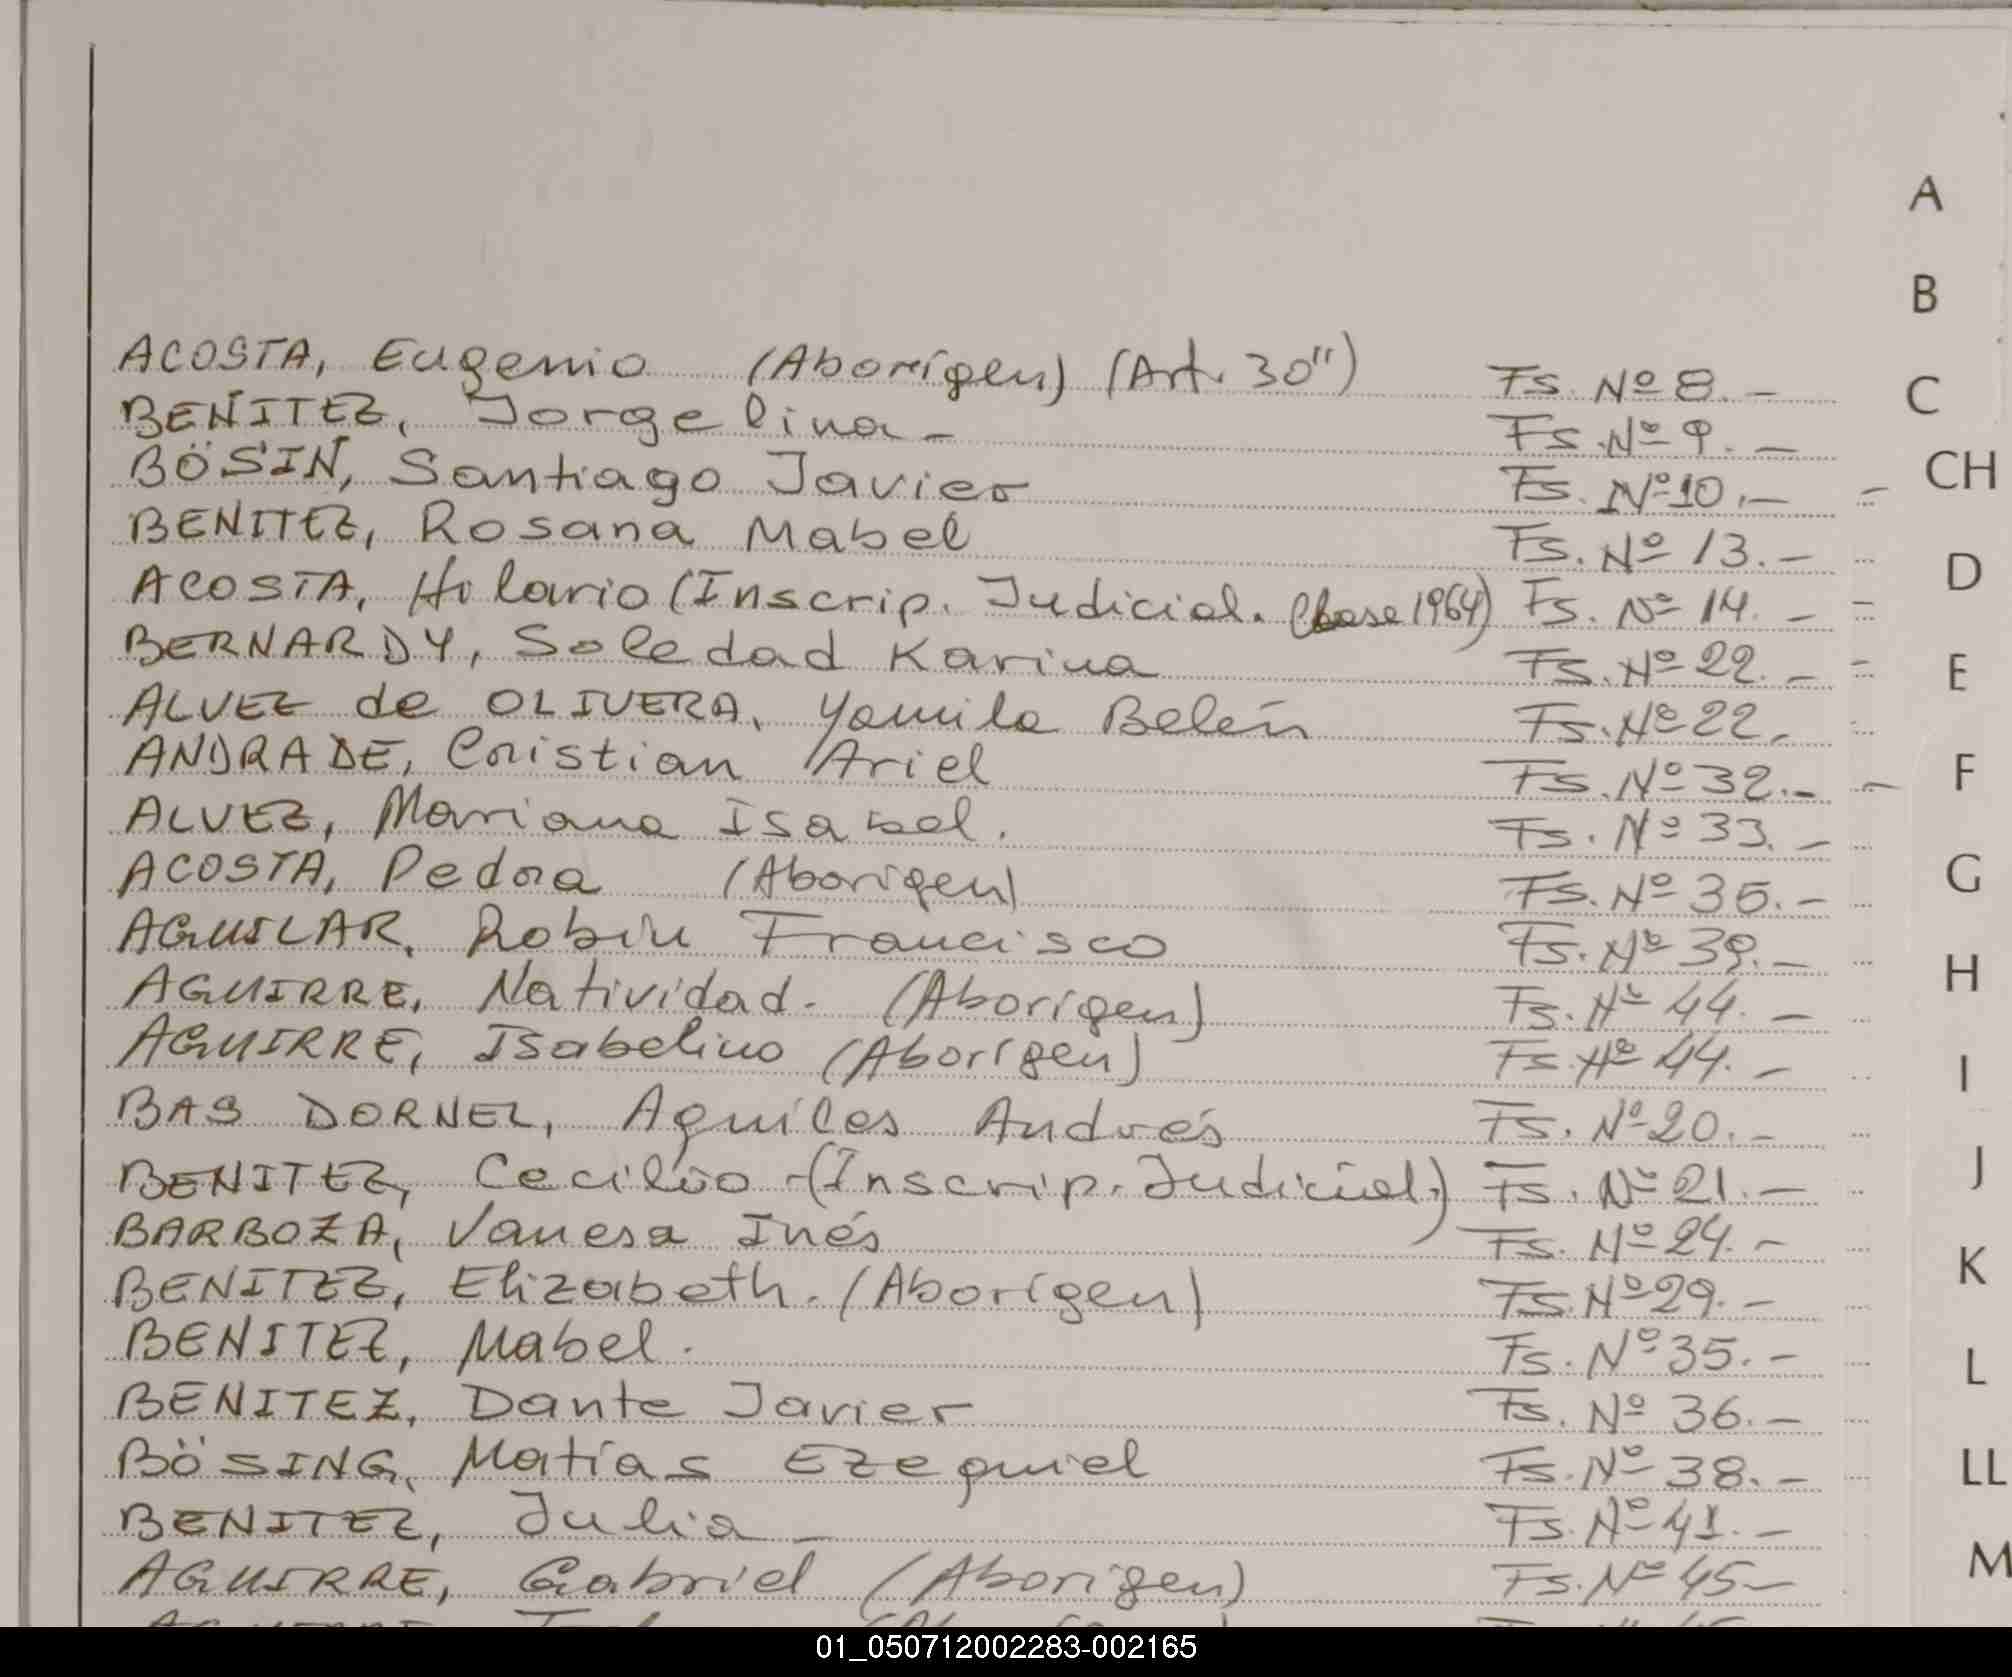 ACOSTA, Eugenio (Aborígen) (Art. 30") Fs. Nº 8.-
BENITEZ, Jorgelina- Fs. Nº 9.-
BÖSIN, Santiago Javier Fs. Nº 10.-
BENITEZ, Rosana Mabel Fs. Nº 13.-
ACOSTA, Hilario (Inscrip. Judicial. (base 1964) Fs. Nº 14.-
BERNARDY, Soledad Karina Fs. Nº 22.-
ALVEZ de OLIVERA, Yamila Belén Fs. Nº 22.
ANDRADE, Cristian Ariel Fs. Nº 32.-
ALVEZ, Mariana Isabel. Fs. Nº 33.-
ACOSTA, Pedra (Aborigen) Fs. Nº 35.-
AGUILAR, Robin Francisco Fs. Nº 39.-
AGUIRRE, Natividad. (Aborígen) Fs. Nº 44.-
AGUIRRE, Isabelino (Aborígen) Fs. Nº 44.-
BAS DORNEL, Aquiles Andrés Fs. Nº 20.-
BENITEZ, Cecilio-(Inscrip. Judicial.) Fs. Nº 21.-
BARBOZA, Vanesa Inés Fs. Nº 24.-
BENITEZ, Elizabeth. (Aborígen) Fs. Nº 29.-
BENITEZ, Mabel. Fs. Nº 35.-
BENITEZ, Dante Javier Fs. Nº 36.-
BÖSING, Matías Ezequiel Fs. Nº 38.-
BENITEZ, Julia- Fs. Nº 41.-
AGUIRRE, Gabriel (Aborigen) Fs. Nº 45-
A
B
C
CH
D
E
F
G
H
I
J
K
L
LL
M
01_050712002283-002165